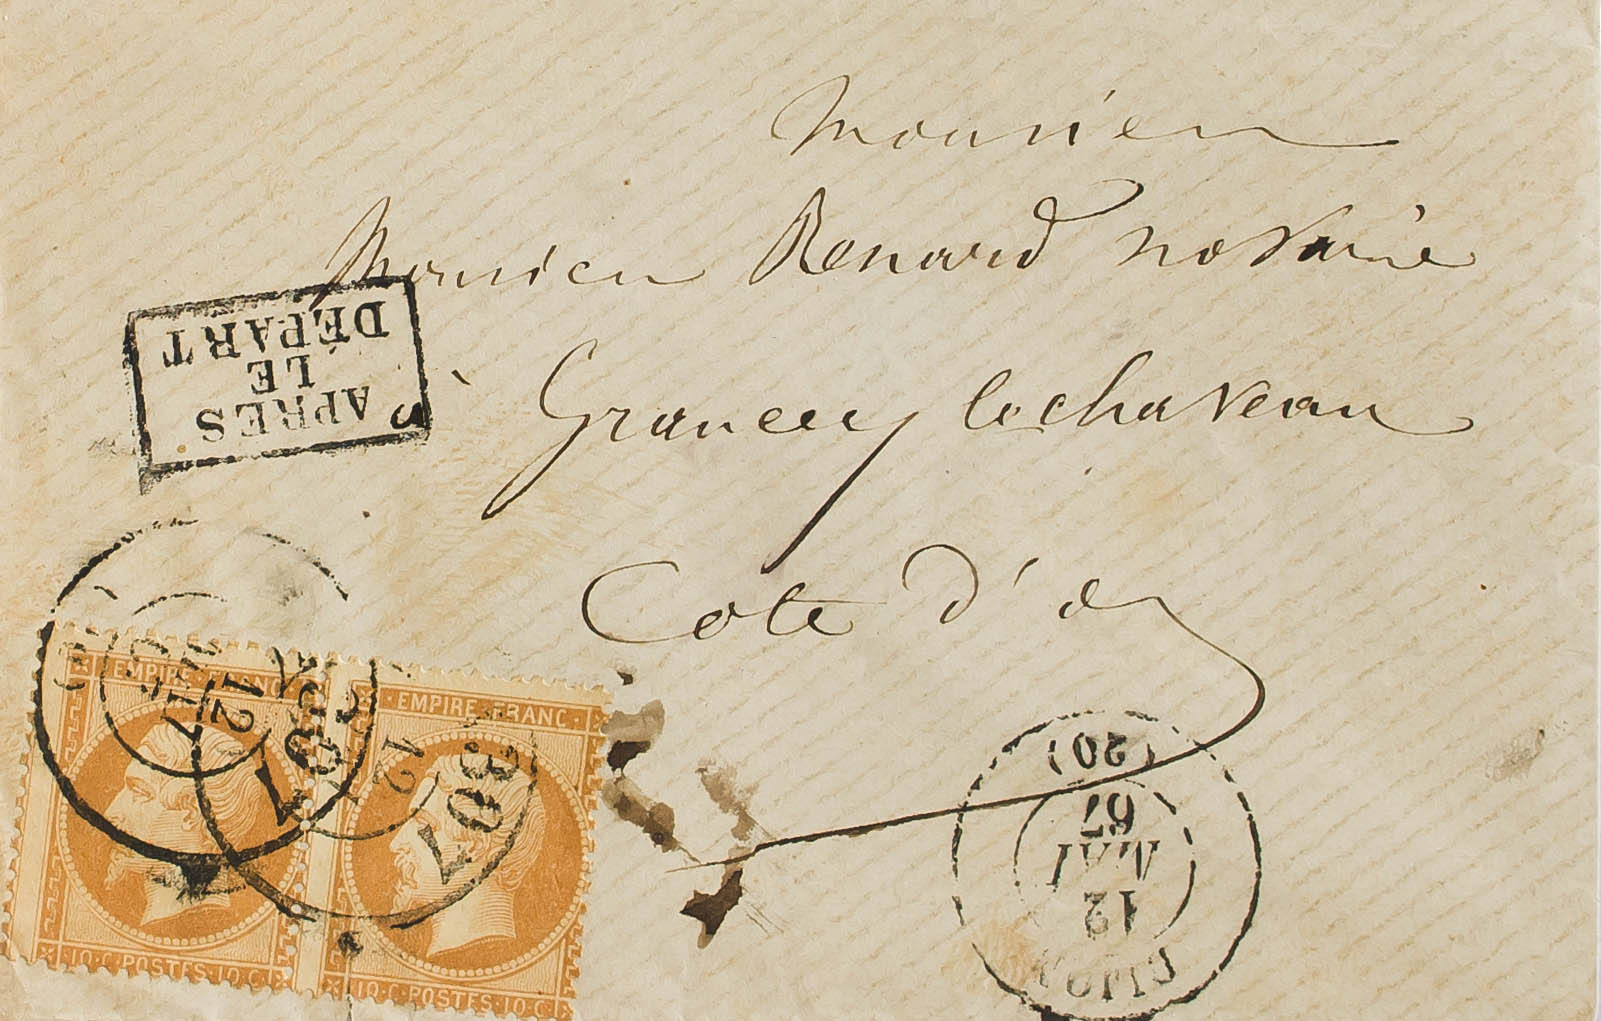 Monsieur
Monsieur Renard notaire
à Grancey le chateau
Cote d'or
APRÈS
LE
DÉPART
EMPIRE FRANC
10 C POSTES 10 C
EMPIRE FRANC
10 C POSTES 10 C
12
67
12
DIJON
12
MAI
67
(20)